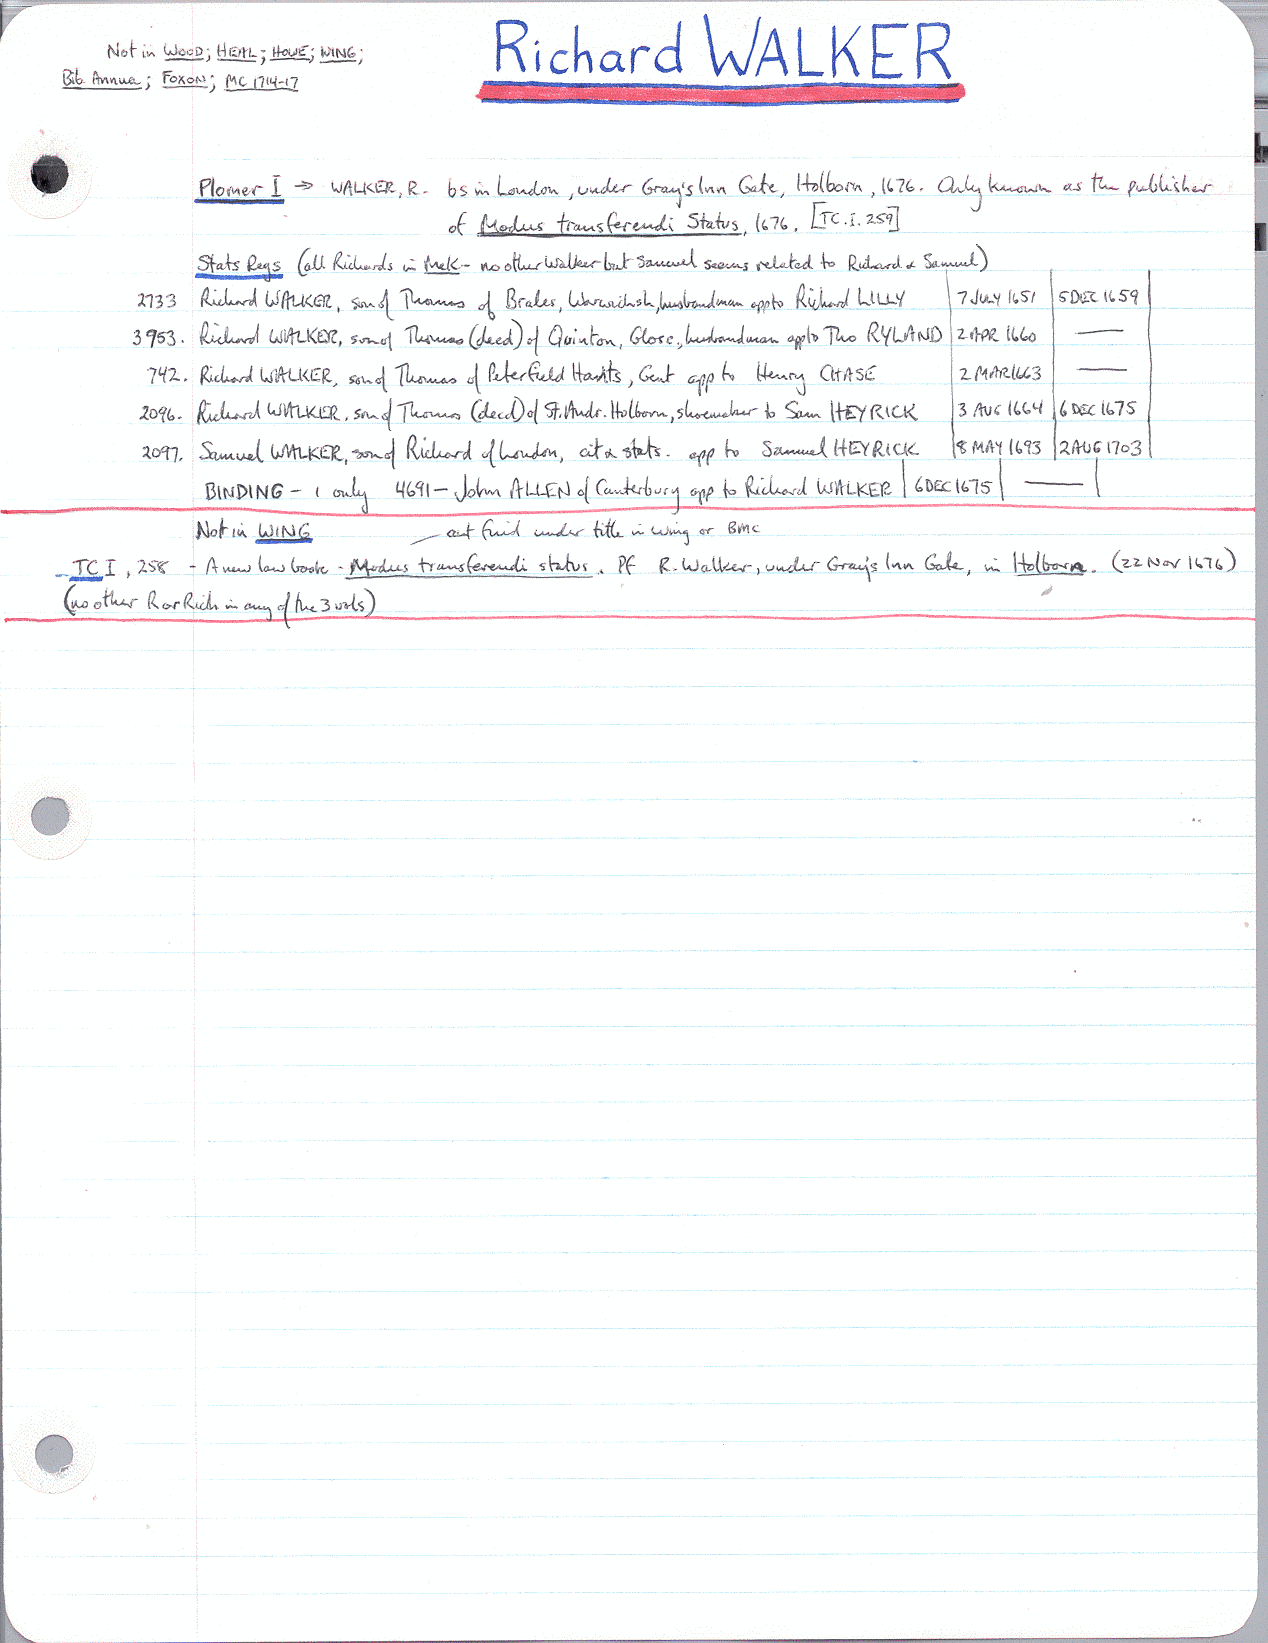 Richard WALKER
Not in WOOD; HEAL; HOWE; WING;
Bib. Annua; FOXON; MC 1714-17
Plomer I → WALKER, R. bs in London, under Gray's Inn Gate, Holborn, 1676. Only known as the publisher
of Modus transferendi Status, 1676. [TC. I. 259]
Stats Regs (all Richards in McK - no other Walker but Samuel seems related to Richard & Samuel)
2733 Richard WALKER, son of Thomas of Brales, Warwicksh, husbandman app to Richard LILLY 7 JULY 1651 5 DEC 1659
3953. Richard WALKER, son of Thomas (decd) of Quinton, Glosc, husbandman app to Tho RYLAND 2 APR 1660 —
742. Richard WALKER, son of Thomas of Peterfield Hants, Gent app to Henry CHASE 2 MAR 1663 —
2096. Richard WALKER, son of Thomas (decd) of St. Andr. Holborn, shoemaker to Sam HEYRICK 3 AUG 1664 6 DEC 1675
2097. Samuel WALKER, son of Richard of London, cit & stats. app to Samuel HEYRICK 8 MAY 1693 2 AUG 1703
BINDING - 1 only 4691 - John ALLEN of Canterbury app to Richard WALKER 6 DEC 1675 —
Not in WING - cant find under title in Wing or BMC
TC I, 258 - A new law book - Modus transferendi status. Pf R. Walker, under Gray's Inn Gate, in Holborn. (22 Nov 1676)
(no other R or Rich in any of the 3 vols)